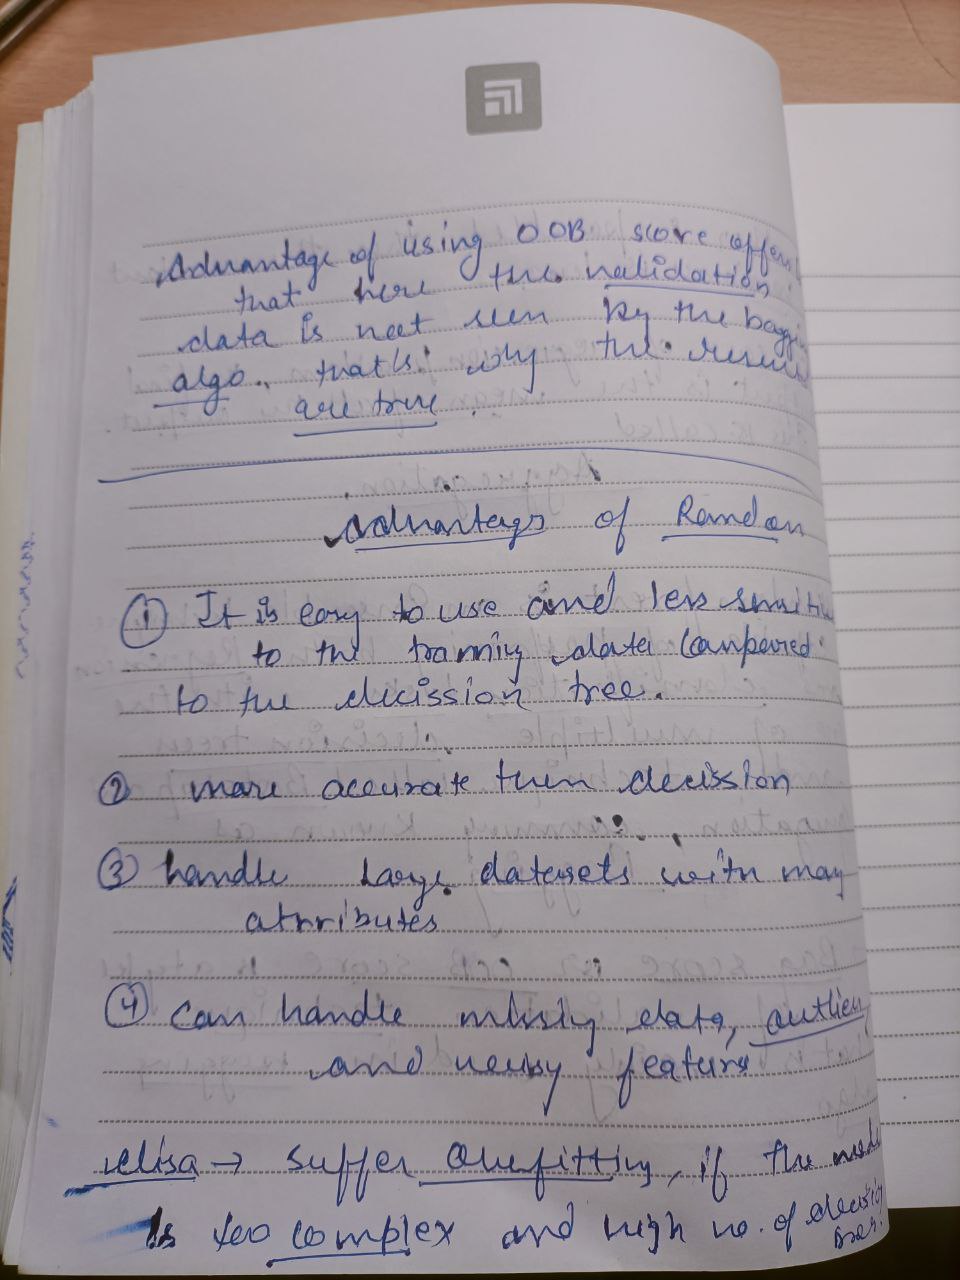 Advantage of using OOB score offers
that here the validation
data is not seen by the bagging
algo. that's why the results
are true.
Advantags of Random
① It is easy to use and less sensitive
to the training data Compared
to the decission tree.
② more accurate then decission
③ handle large datasets with may
attributes
④ Can handle missing data, outliers
and noisy features
suffer overfitting, if the model
is too complex and high no. of decision
trees.